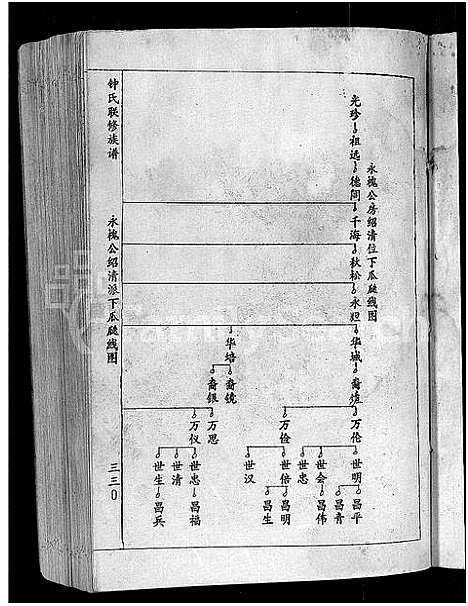 永槐公房绍清位下瓜瓞线图
光珍 祖远 德间 千海 秋松 永妲 华城 裔煊 万伦 世明 昌平
昌青
世会 昌伟
世忠
万俭 世倍 昌明
昌生
世汉
华培 裔镜
裔银 万思
万仪 世忠 昌福
世清
世生 昌兵
钟氏联修族谱
永槐公绍清派下瓜瓞线图
三三0